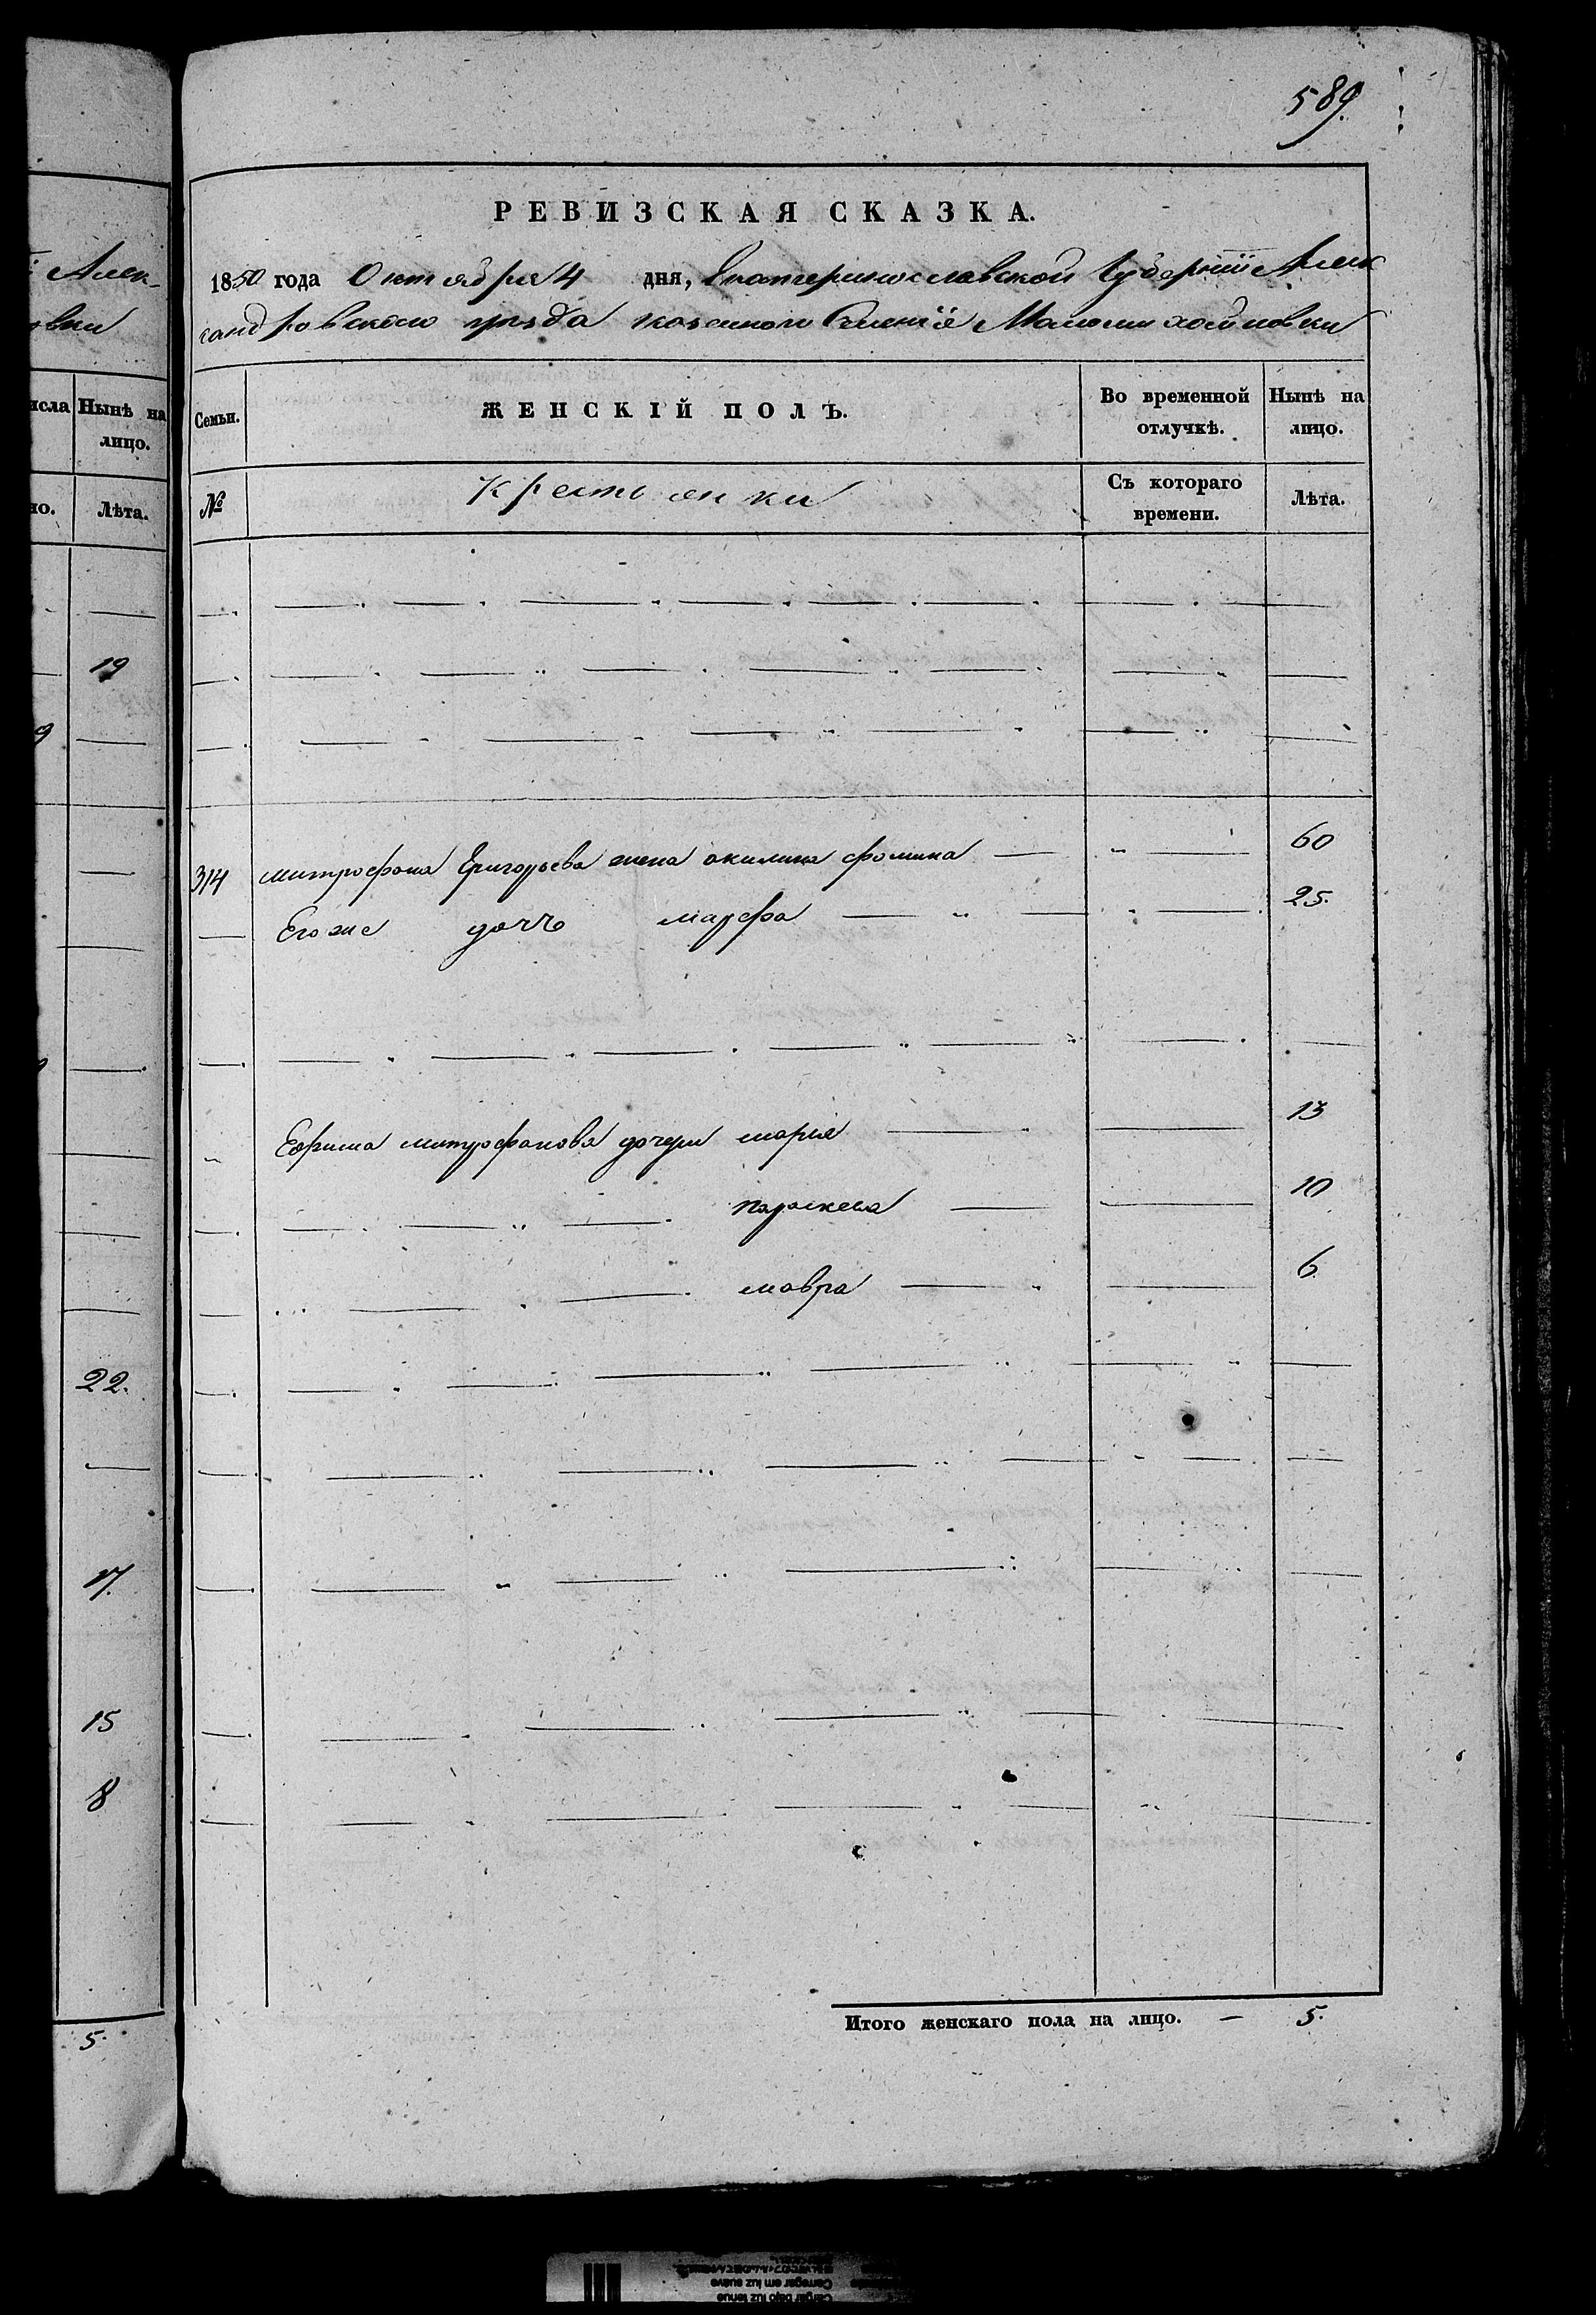 589.
РЕВИЗСКАЯ СКАЗКА.
1850 года Октября 4 дня, Екатеринославской Губернии Алек
сандровского уезда казенного Селения Маломихайловки
Семьи. ЖЕНСКІЙ ПОЛЪ. Во временной отлучкѣ. Нынѣ на лицо.
№ Крестьянки Съ котораго времени. Лѣта.
314 митрофана Григорьева жена акилина фомина 60
Его же дочь марфа 25.
Ефима митрофанова дочери мария 13
параскева 10
мавра 6
Итого женскаго пола на лицо. — 5.
Алек-
овки
исла Нынѣ на
лицо.
но. Лѣта.
19
9
22.
17.
15
8
5.
Cargar bajo luz tenue
Carregar em luz suave